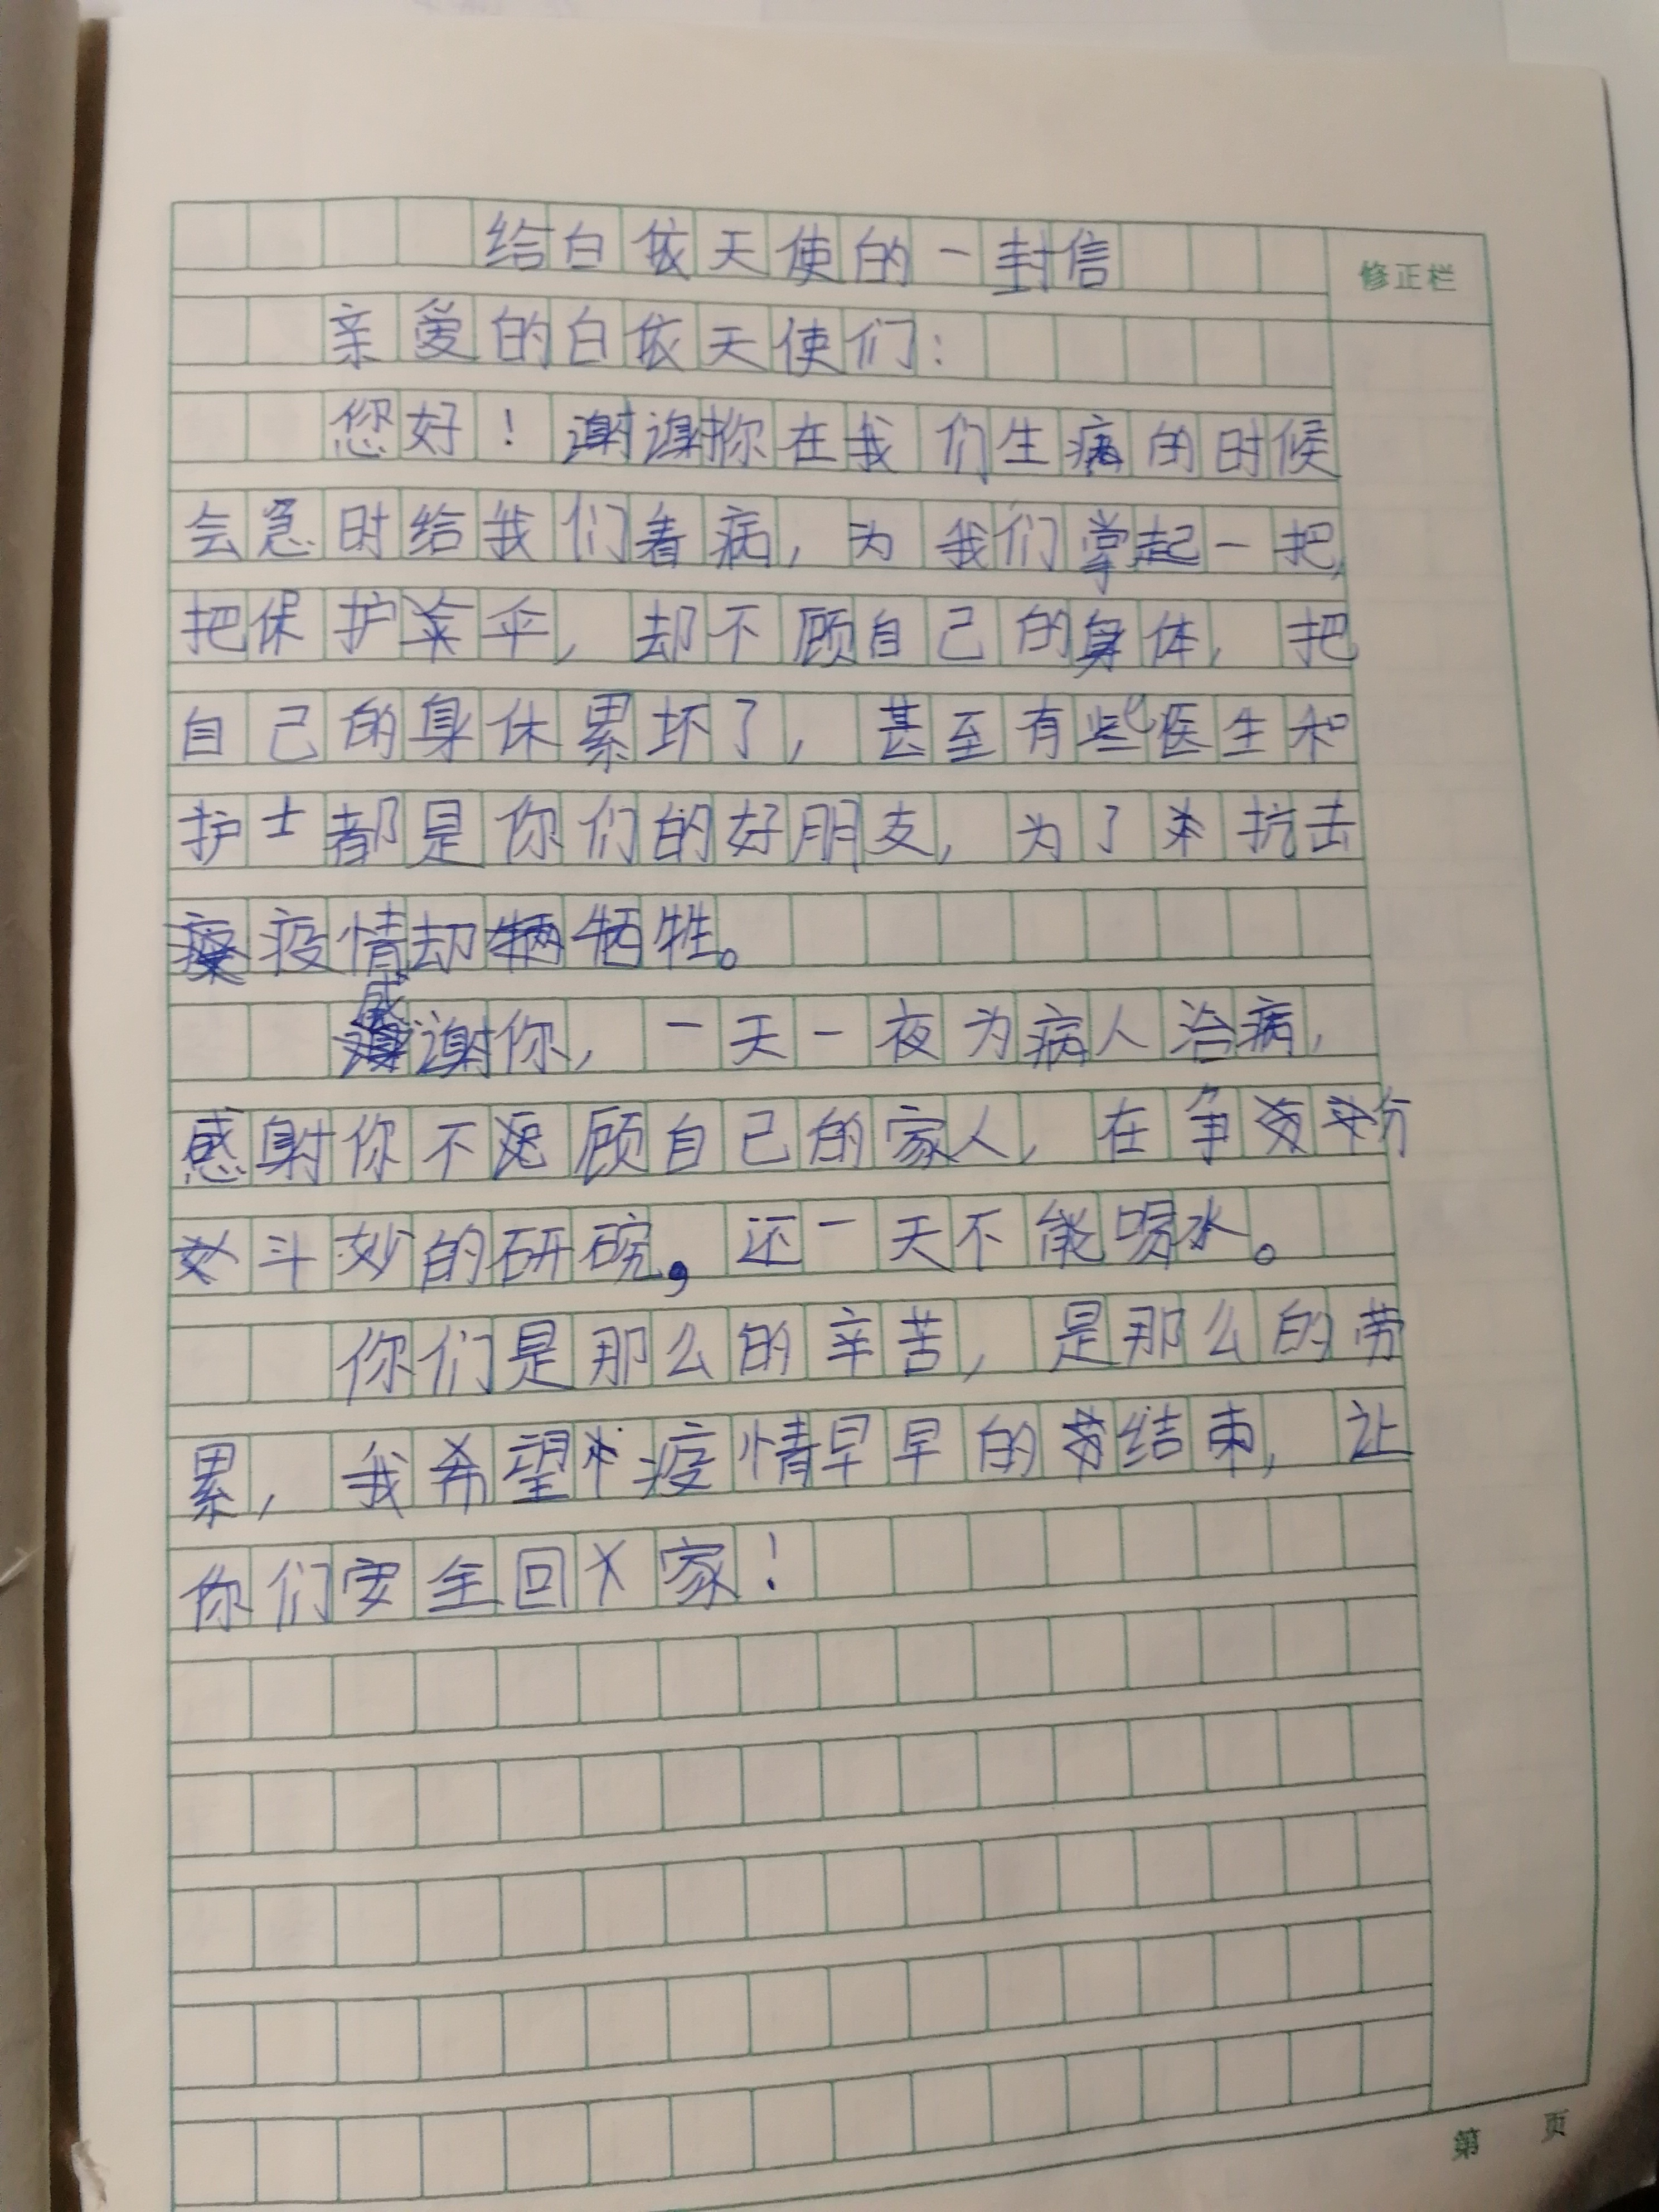 给白依天使的一封信
修正栏
亲爱的白依天使们：
您好！谢谢你在我们生病的时候
会急时给我们看病，为我们掌起一把，
把保护伞，却不顾自己的身体，把
自己的身休累坏了，甚至有些医生和
护士都是你们的好朋友，为了抗击
疫情却牺牲。
感谢你，一天一夜为病人治病，
感射你不顾自己的家人，在争分
斗妙的研碗，还一天不能喝水。
你们是那么的辛苦，是那么的劳
累，我希望疫情早早的结束，让
你们安全回家！
第 页